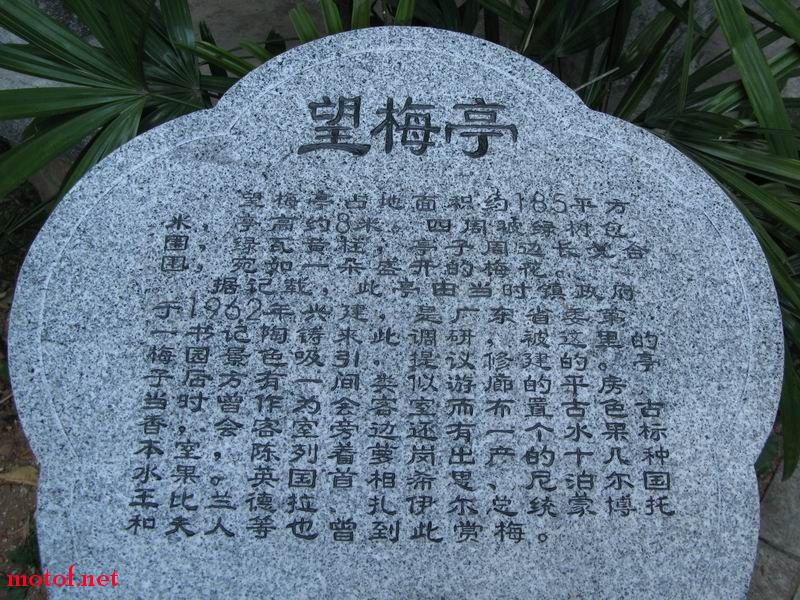 望梅亭
望梅亭占地面积约185平方
米，亭高约8米。四周被绿树包
围，绿瓦黄柱，亭子周边长
围，宛如一朵，盛开的梅花。
据记载，此亭由当时镇政府
于1962年兴建，是广东省委第
一书记陶铸来此调研，被这里的
梅园景色吸引。提议修建的亭
子后方有一间类似游廊的平房。
当时，曾作为会客室而布置古色古
香，会客室旁边还有一个水果标
本室。陈列着萝岗出产的十几种
水果。英国首相斋思、尼泊尔国
王比兰德拉、扎伊尔总统蒙博托
和夫人等也曾到此赏梅。
motof.net